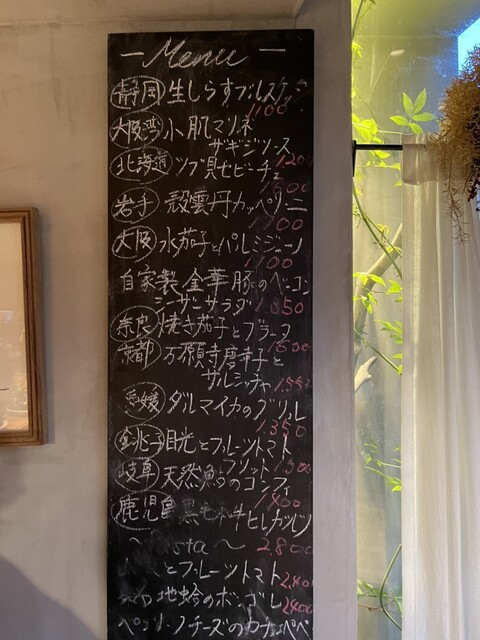 Menu
静岡 生しらすブルスケッタ
1100
大阪湾 小肌マリネ
サギジソース
1200
北海道 ツブ貝セビーチェ
1500
岩手 殻雲丹カッペリーニ
大阪 水茄子とパルミジャーノ
1100
自家製金華豚のベーコン
シーザーサラダ 1350
奈良 焼き茄子とブラータ
1600
京都 万願寺唐辛子と
サルシッチャ 1550
愛媛 ダルマイカのグリル
1350
銚子 目光とフルーツトマト
フリット 1300
岐阜 天然鮎のコンフィ
1400
鹿児島 黒毛和牛ヒレカツレツ
~ Pasta ~ 2.800
とフルーツトマト
2400
地蛤のボンゴレ
2400
チーズのカチョペペ